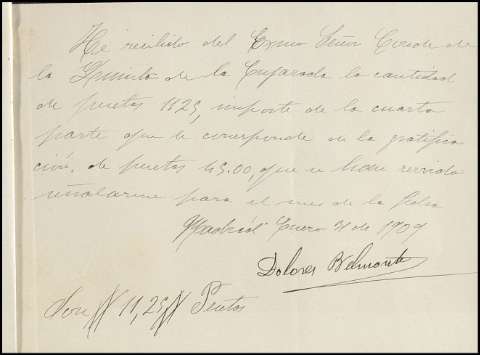 He recibido del Exmo Señor Conde de
la Quinta de la Enjarada la cantidad
de pesetas 11'25, importe de la cuarta
parte que le corresponde en la gratifica
ción, de pesetas 45.00, que se han servido
señalarme para el mes de la fecha
Madrid Enero 31 de 1909
Dolores Belmonte
Son 11,25 Pesetas